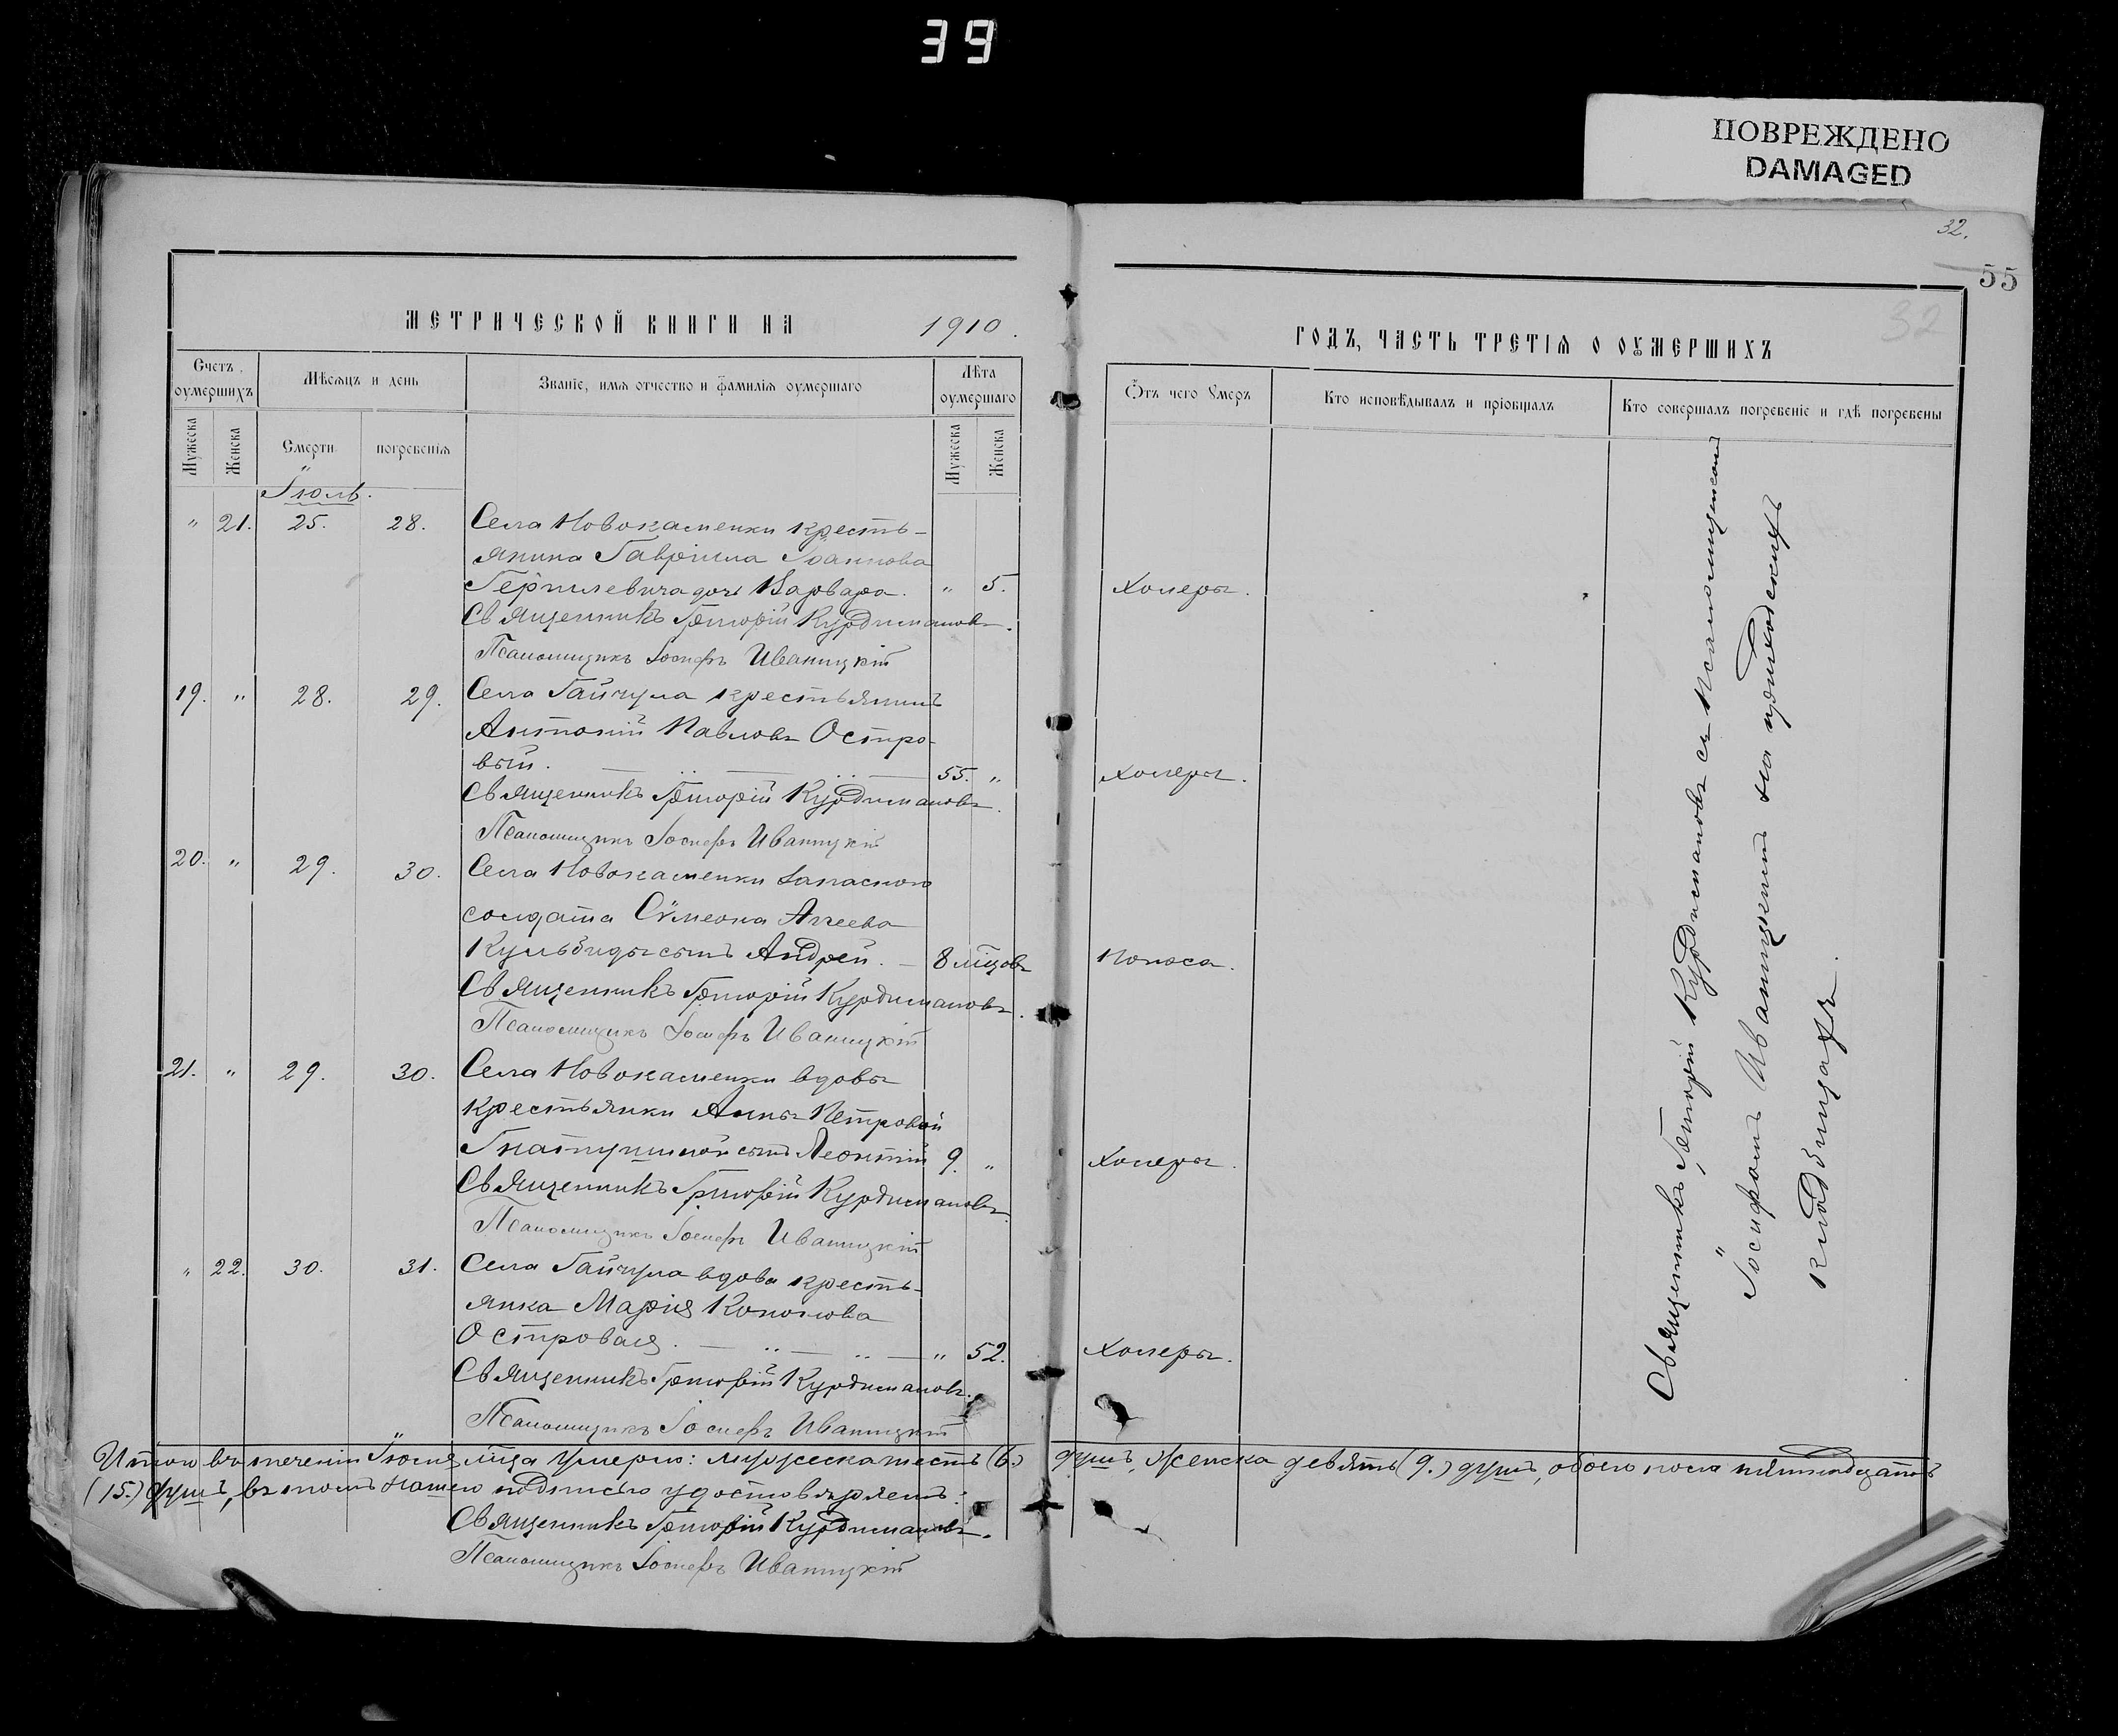 39
ПОВРЕЖДЕНО
DAMAGED
32.
55
32
МЕТРИЧЕСКОЙ КНИГИ НА 1910.
Счетъ оумершихъ
Мѣсяцъ и день
Званіе, имя отчество и фамилія оумершаго
Лѣта оумершаго
Мужеска
Женска
Смерти
погребенія
Мужеска
Женска
Іюль.
" 21. 25. 28. Села Новокаменки кресть-
янина Гавріила Іоаннова
дочь Варвара. " 5.
Священникъ Григорій Курдимановъ.
Псаломщикъ Іосифъ Иваницкій
19. " 28. 29. Села Гайчула крестьянинъ
Антоній Павловъ Остро-
вый. 55. "
Священникъ Григорій Курдимановъ.
Псаломщикъ Іосифъ Иваницкій
20. " 29. 30. Села Новокаменки запасного
солдата Сѵмеона Аггеева
Кульбиды сынъ Андрей. — 8 мцовъ
Священникъ Григорій Курдимановъ.
Псаломщикъ Іосифъ Иваницкій
21. " 29. 30. Села Новокаменки вдовы
крестьянки Анны Петровой
сынъ Леонтій 9. "
Священникъ Григорій Курдимановъ.
Псаломщикъ Іосифъ Иваницкій
" 22. 30. 31. Села Гайчула вдова кресть-
янка Марія Кононова
Островая. " 52.
Священникъ Григорій Курдимановъ.
Псаломщикъ Іосифъ Иваницкій
ГОДЪ, ЧАСТЬ ТРЕТІЯ О ОУМЕРШИХЪ
Отъ чего умеръ
Кто исповѣдывалъ и пріобщалъ
Кто совершалъ погребеніе и гдѣ погребены
Холеры.
Холеры.
Поноса.
Холеры.
Холеры.
Священникъ Григорій Курдимановъ съ псаломщикомъ
Іосифомъ Иваницкимъ на приходскихъ
кладбищахъ.
Итого въ теченіи Іюля мца умерло: мужеска шесть (6.) душъ, женска девять (9.) душъ, обоего пола пятнадцать
(15.) душъ, въ томъ нашею подписью удостовѣряемъ:
Священникъ Григорій Курдимановъ.
Псаломщикъ Іосифъ Иваницкій